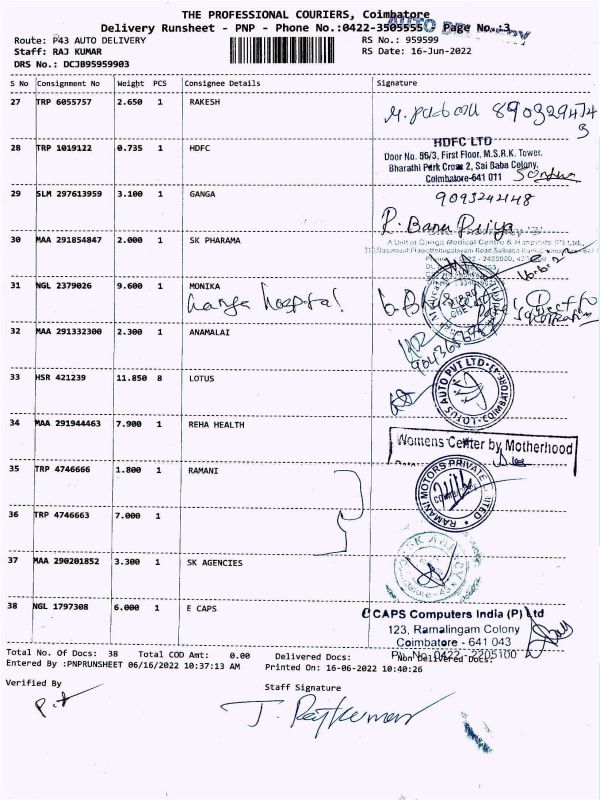 THE PROFESSIONAL COURIERS, Coimbatore
Delivery Runsheet - PNP - Phone No.:0422-3505555 Page No.:3
AUTO DELIVERY
Route: P43 AUTO DELIVERY RS No.: 959599
Staff: RAJ KUMAR RS Date: 16-Jun-2022
DRS No.: DCJB95959903
S No Consignment No Weight PCS Consignee Details Signature
27 TRP 6055757 2.650 1 RAKESH
28 TRP 1019122 0.735 1 HDFC
HDFC LTD
Door No. 55/3, First Floor, M.S.R.K. Tower,
Bharathi Park Cross 2, Sai Baba Colony,
Coimbatore-641 011
29 SLM 297613959 3.100 1 GANGA
9093242148
R. Banu Priya
30 MAA 291854847 2.000 1 SK PHARAMA
A Unit of Ganga Medical Centre & Hospitals (P) Ltd.,
16.6.22
31 NGL 2379026 9.600 1 MONIKA
Ganga hospital
32 MAA 291332300 2.300 1 ANAMALAI
33 HSR 421239 11.850 8 LOTUS
LOTUS AUTO PVT LTD COIMBATORE-43
34 MAA 291944463 7.900 1 REHA HEALTH
Womens Center by Motherhood
35 TRP 4746666 1.800 1 RAMANI
RAMANI MOTORS PRIVATE LIMITED
36 TRP 4746663 7.000 1
37 MAA 290201852 3.300 1 SK AGENCIES
38 NGL 1797308 6.000 1 E CAPS
eCAPS Computers India (P) Ltd
123, Ramalingam Colony
Coimbatore - 641 043
Ph. No.0422 - 2205100
Total No. Of Docs: 38 Total COD Amt: 0.00 Delivered Docs: Non Delivered Docs:
Entered By :PNPRUNSHEET 06/16/2022 10:37:13 AM Printed On: 16-06-2022 10:40:26
Verified By Staff Signature
J. Rajkumar